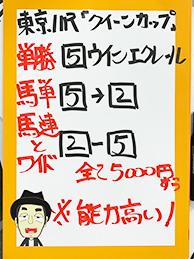 東京11R『クイーンカップ』
単勝 5 ウインエクレール
馬単 5→2
馬連とワイド 2-5
全て5000円ずつ
※能力高い!